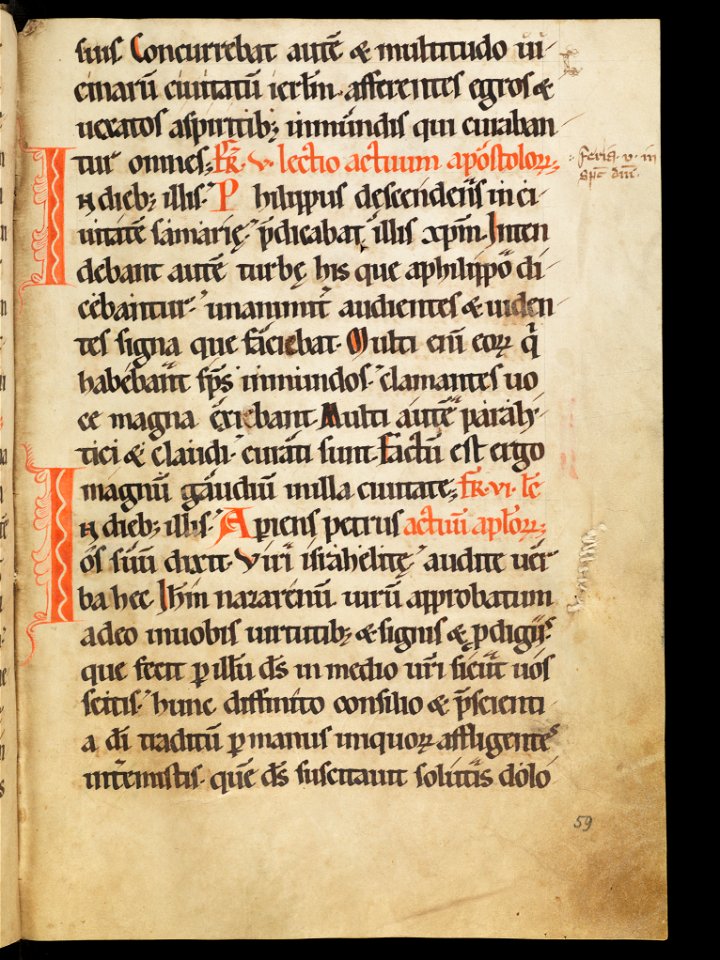 suis. Concurrebat autē & multitudo ui-
cinarū ciuitatū ierl̄m. afferentes egros &
uexatos aspiritib; inmundis qui curaban-
tur omnes; FR̄. v. lectio actuum apostoloꝝ;
IN dieb; illis. Philippus descendens in ci-
uitatē samarię. p̄dicabat illis xp̄m. Inten
debant autē turbę his que aphilippo di-
cebantur. unanimit̄ audientes & uiden-
tes signa que faciebat. Multi eni͂ eoꝝ q̇
habebant sp̄s inmundos. clamantes uo
ce magna exiebant. Multi autē paraly-
tici & claudi. curati sunt. Factū est ergo
magnū gaudiū inilla ciuitate; FR̄. vi. lc̄
IN dieb; illis. Aperiens petrus actuū apl̄oꝝ;
os suū dixit. Viri israhelitę audite uer-
ba hec. Ihm̄ nazarenū. uirū approbatum
adeo inuobis uirtutib; & signis & ꝓdigiis.
que fecit ꝑ illū ds̄ in medio ur̄i sicut uos
scitis. hunc diffinito consilio & p̄scienti
a dī traditū ꝑ manus iniquoꝝ affligentes
interemistis. quē ds̄ suscitauit solutis dolo
feria. v. in
59